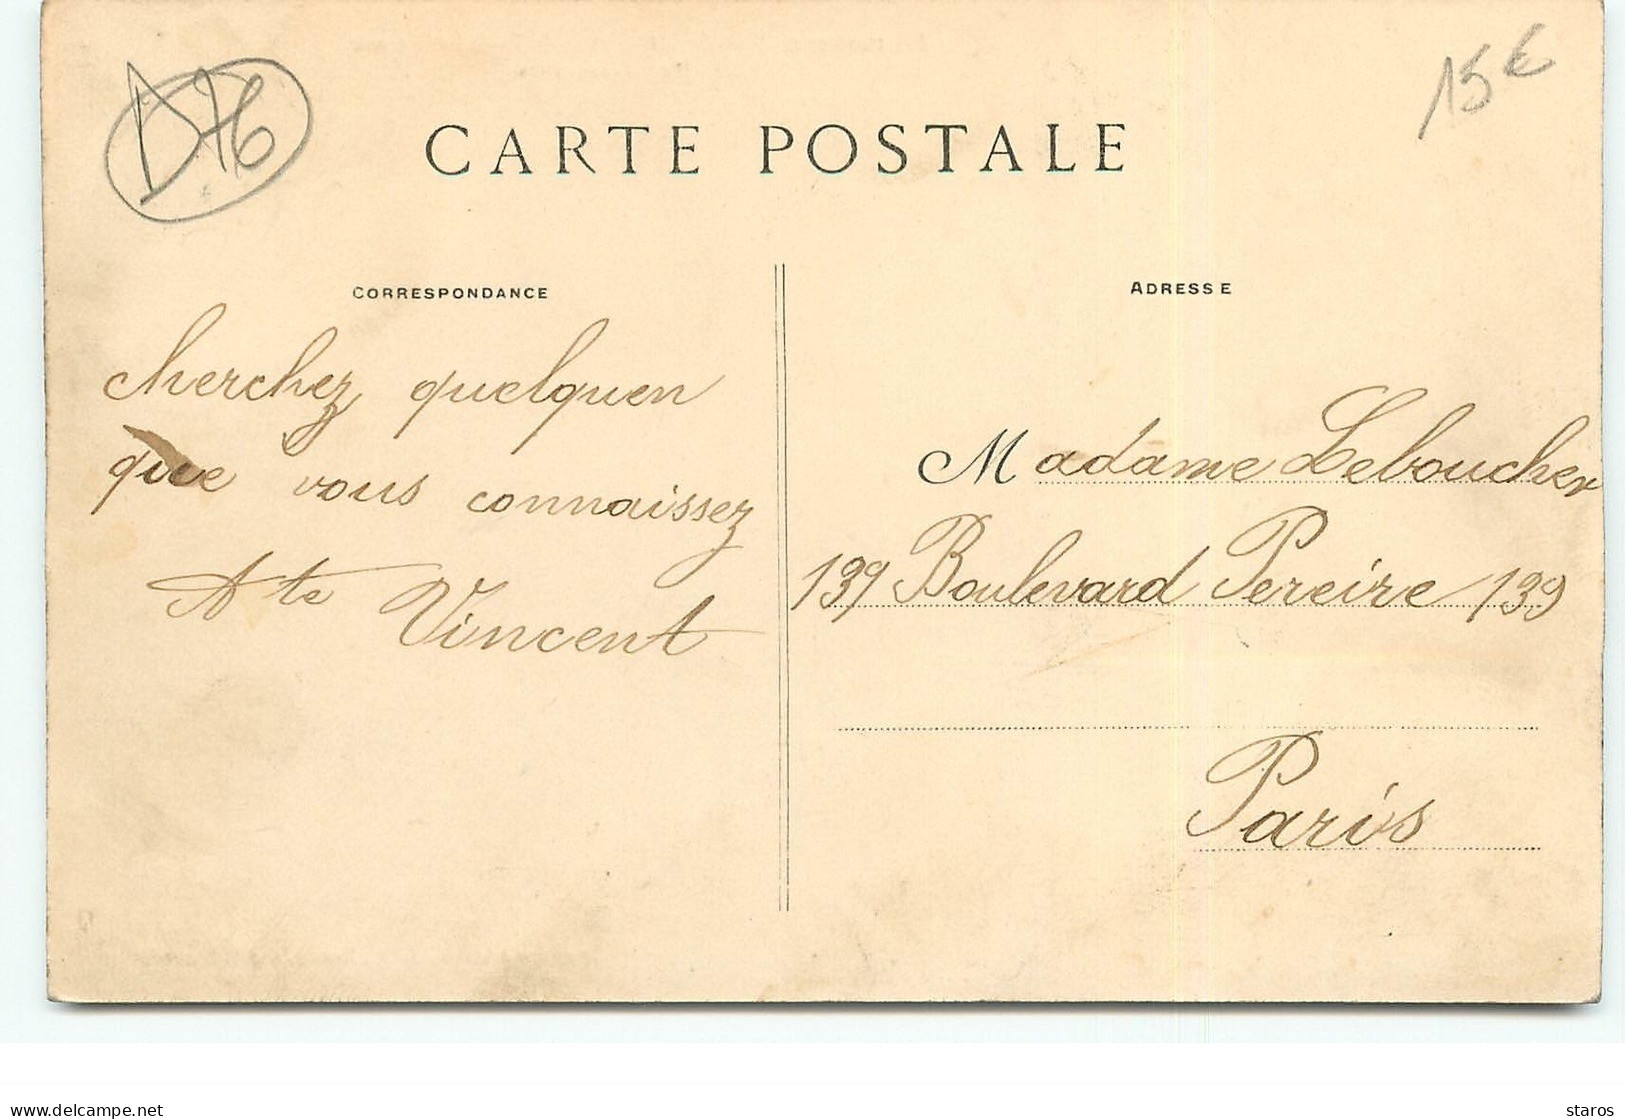 D76
15€
CARTE POSTALE
CORRESPONDANCE
cherchez quelquen
que vous connaissez
Ate Vincent
ADRESSE
Madame Leboucher
139 Boulevard Pereire 139
Paris
delcampe.net
staros